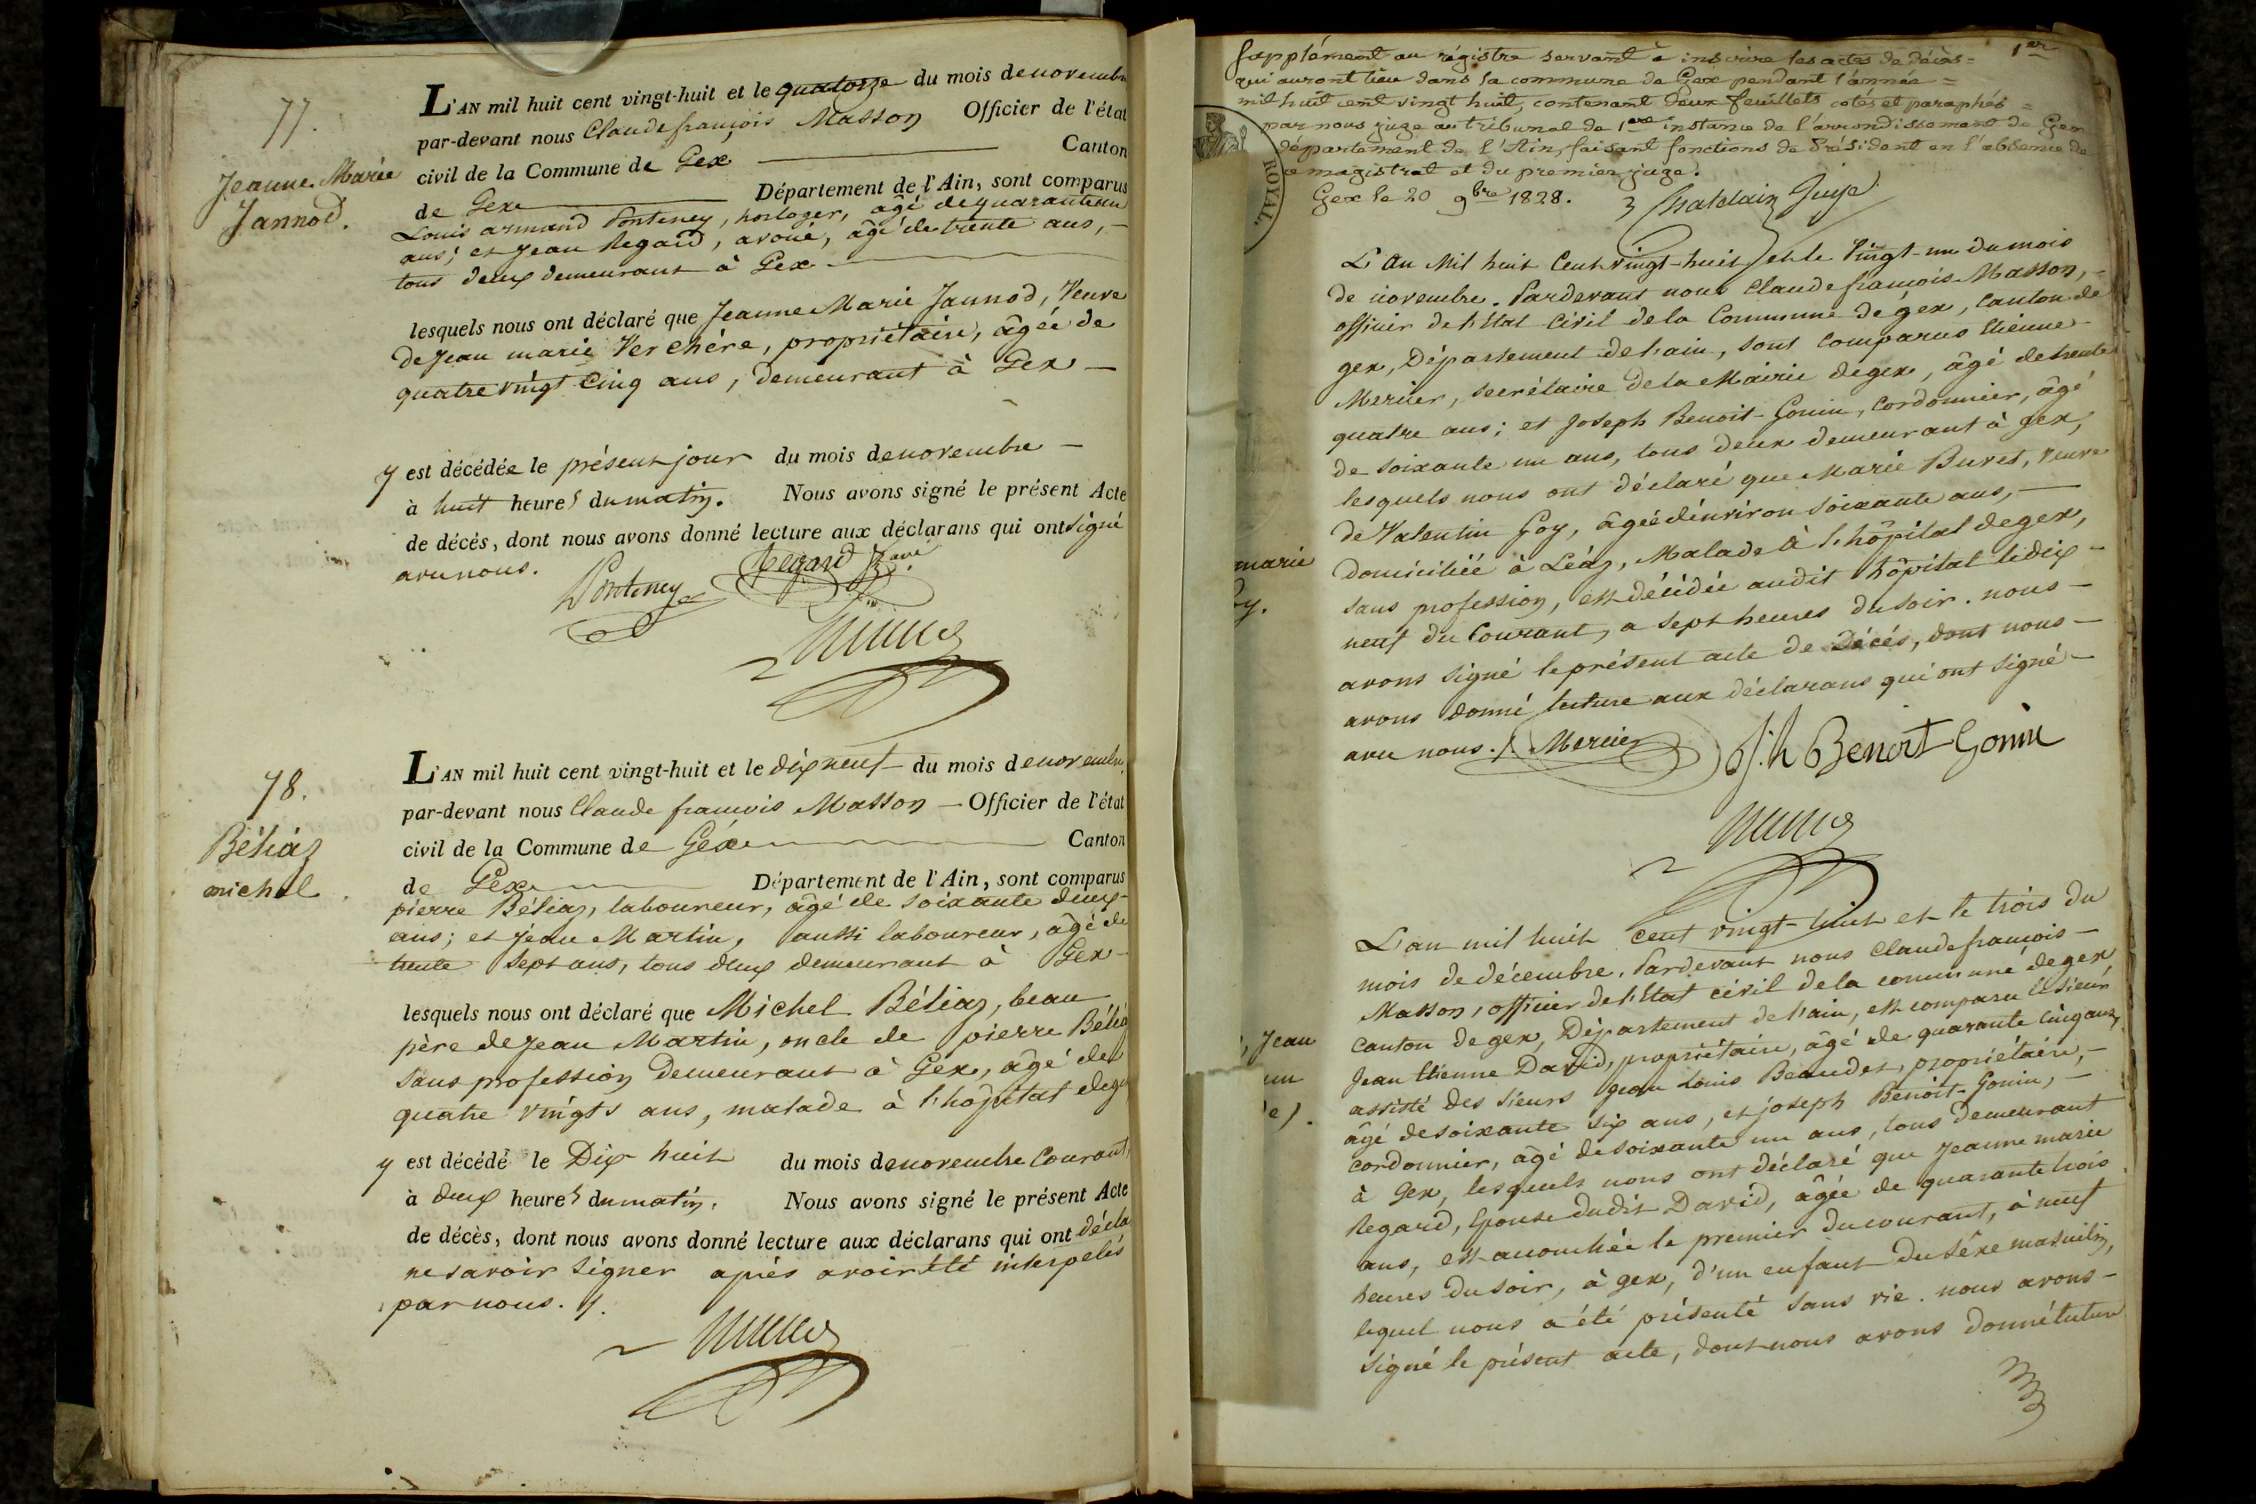 77.
Jeanne Marie
Jannod.
L'AN mil huit cent vingt-huit et le quatorze du mois de novembre
par-devant nous Claude françois Masson Officier de l'état
civil de la Commune de Gex Canton
de Gex Département de l'Ain, sont comparus
Louis armand Ponteney, horloger, âgé de quarante un
ans; et Jean Regard, avoué, âgé de trente ans,
tous deux demeurant à Gex
lesquels nous ont déclaré que Jeanne Marie Jannod, Veuve
de Jean marie Verchère, propriétaire, âgée de
quatre vingt cinq ans, demeurant à Gex
y est décédée le présent jour du mois de novembre
à huit heures du matin. Nous avons signé le présent Acte
de décés, dont nous avons donné lecture aux déclarans qui ont signé
avec nous.
Ponteney Regard
78.
Béliaz
michel
L'AN mil huit cent vingt-huit et le dix neuf du mois de novembre
par-devant nous Claude francois Masson Officier de l'état
civil de la Commune de Géx Canton
de Gex Département de l'Ain, sont comparus
pierre Béliaz, laboureur, âgé de soixante deux
ans; et Jean Martin, aussi laboureur, âgé de
trente sept ans, tous deux demeurant à Gex
lesquels nous ont déclaré que Michel Béliaz, beau
père de Jean Martin, oncle de pierre Bélia
sans profession demeurant à Gex, âgé de
quatre vingts ans, malade à l'hôpital de ge
y est décédé le Dix huit du mois de novembre Courant,
à deux heures du matin. Nous avons signé le présent Acte
de décès, dont nous avons donné lecture aux déclarans qui ont décla
ne savoir signer après avoir été interpelés
par nous.
Supplément au régistre servant à inscrire les actes de décès 1er
qui auront lieu dans la commune de Gex pendant l'année
mil huit cent vingt huit, contenant deux feuillets cotés et paraphés
par nous juge au tribunal de 1ere instance de l'arrondissement de Gex
département de l'Ain, faisant fonctions de Président en l'absence de
ce magistrat et du premier juge.
Gex le 20 9bre 1828. Juge
ROYAL.
L'an Mil huit Cent vingt-huit et le Vingt-un du mois
de novembre. Pardevant nous Claude francois Masson,
officier de l'Etat Civil de la Commune de gex, Canton de
gex, Département de l'ain, sont comparus Etienne
Mercier, secrétaire de la Mairie de gex, âgé de trente
quatre ans; et Joseph Benoit-Gonin, Cordonnier, âgé
de soixante un ans, tous deux demeurant à gex,
lesquels nous ont déclaré que Marie Buvet, veuve
de Valentin Goy, âgée d'environ soixante ans,
domiciliée à Léaz, Malade à l'hôpital de gex,
sans profession, est décédée audit hôpital le dix
neuf du Courant, a sept heures du soir. nous
avons signé le présent acte de Décés, dont nous
avons donné lecture aux déclarans qui ont signé
avec nous. Mercier Jh Benoit Gonin
marie
oy.
L'an mil huit cent vingt-huit et le trois du
mois de décembre. Pardevant nous Claude françois
Masson, officier de l'Etat civil de la commune de gex
canton de gex, Département de l'ain, est comparu le sieur
Jean Etienne David, propriétaire, âgé de quarante cinq ans,
assisté des sieurs Jean Louis Beaudet, propriétaire,
âgé de soixante six ans, et joseph Benoit-Gonin,
cordonnier, âgé de soixante un ans, tous demeurant
à Gex, lesquels nous ont déclaré que Jeanne marie
Regard, Epouse dudit David, âgée de quarante trois
ans, est accouchée le premier du courant, à neuf
heures du soir, à gex, d'un enfant du séxe masculin,
lequel nous a été présenté sans vie. nous avons
signé le présent acte, dont nous avons donné lecture
, Jean